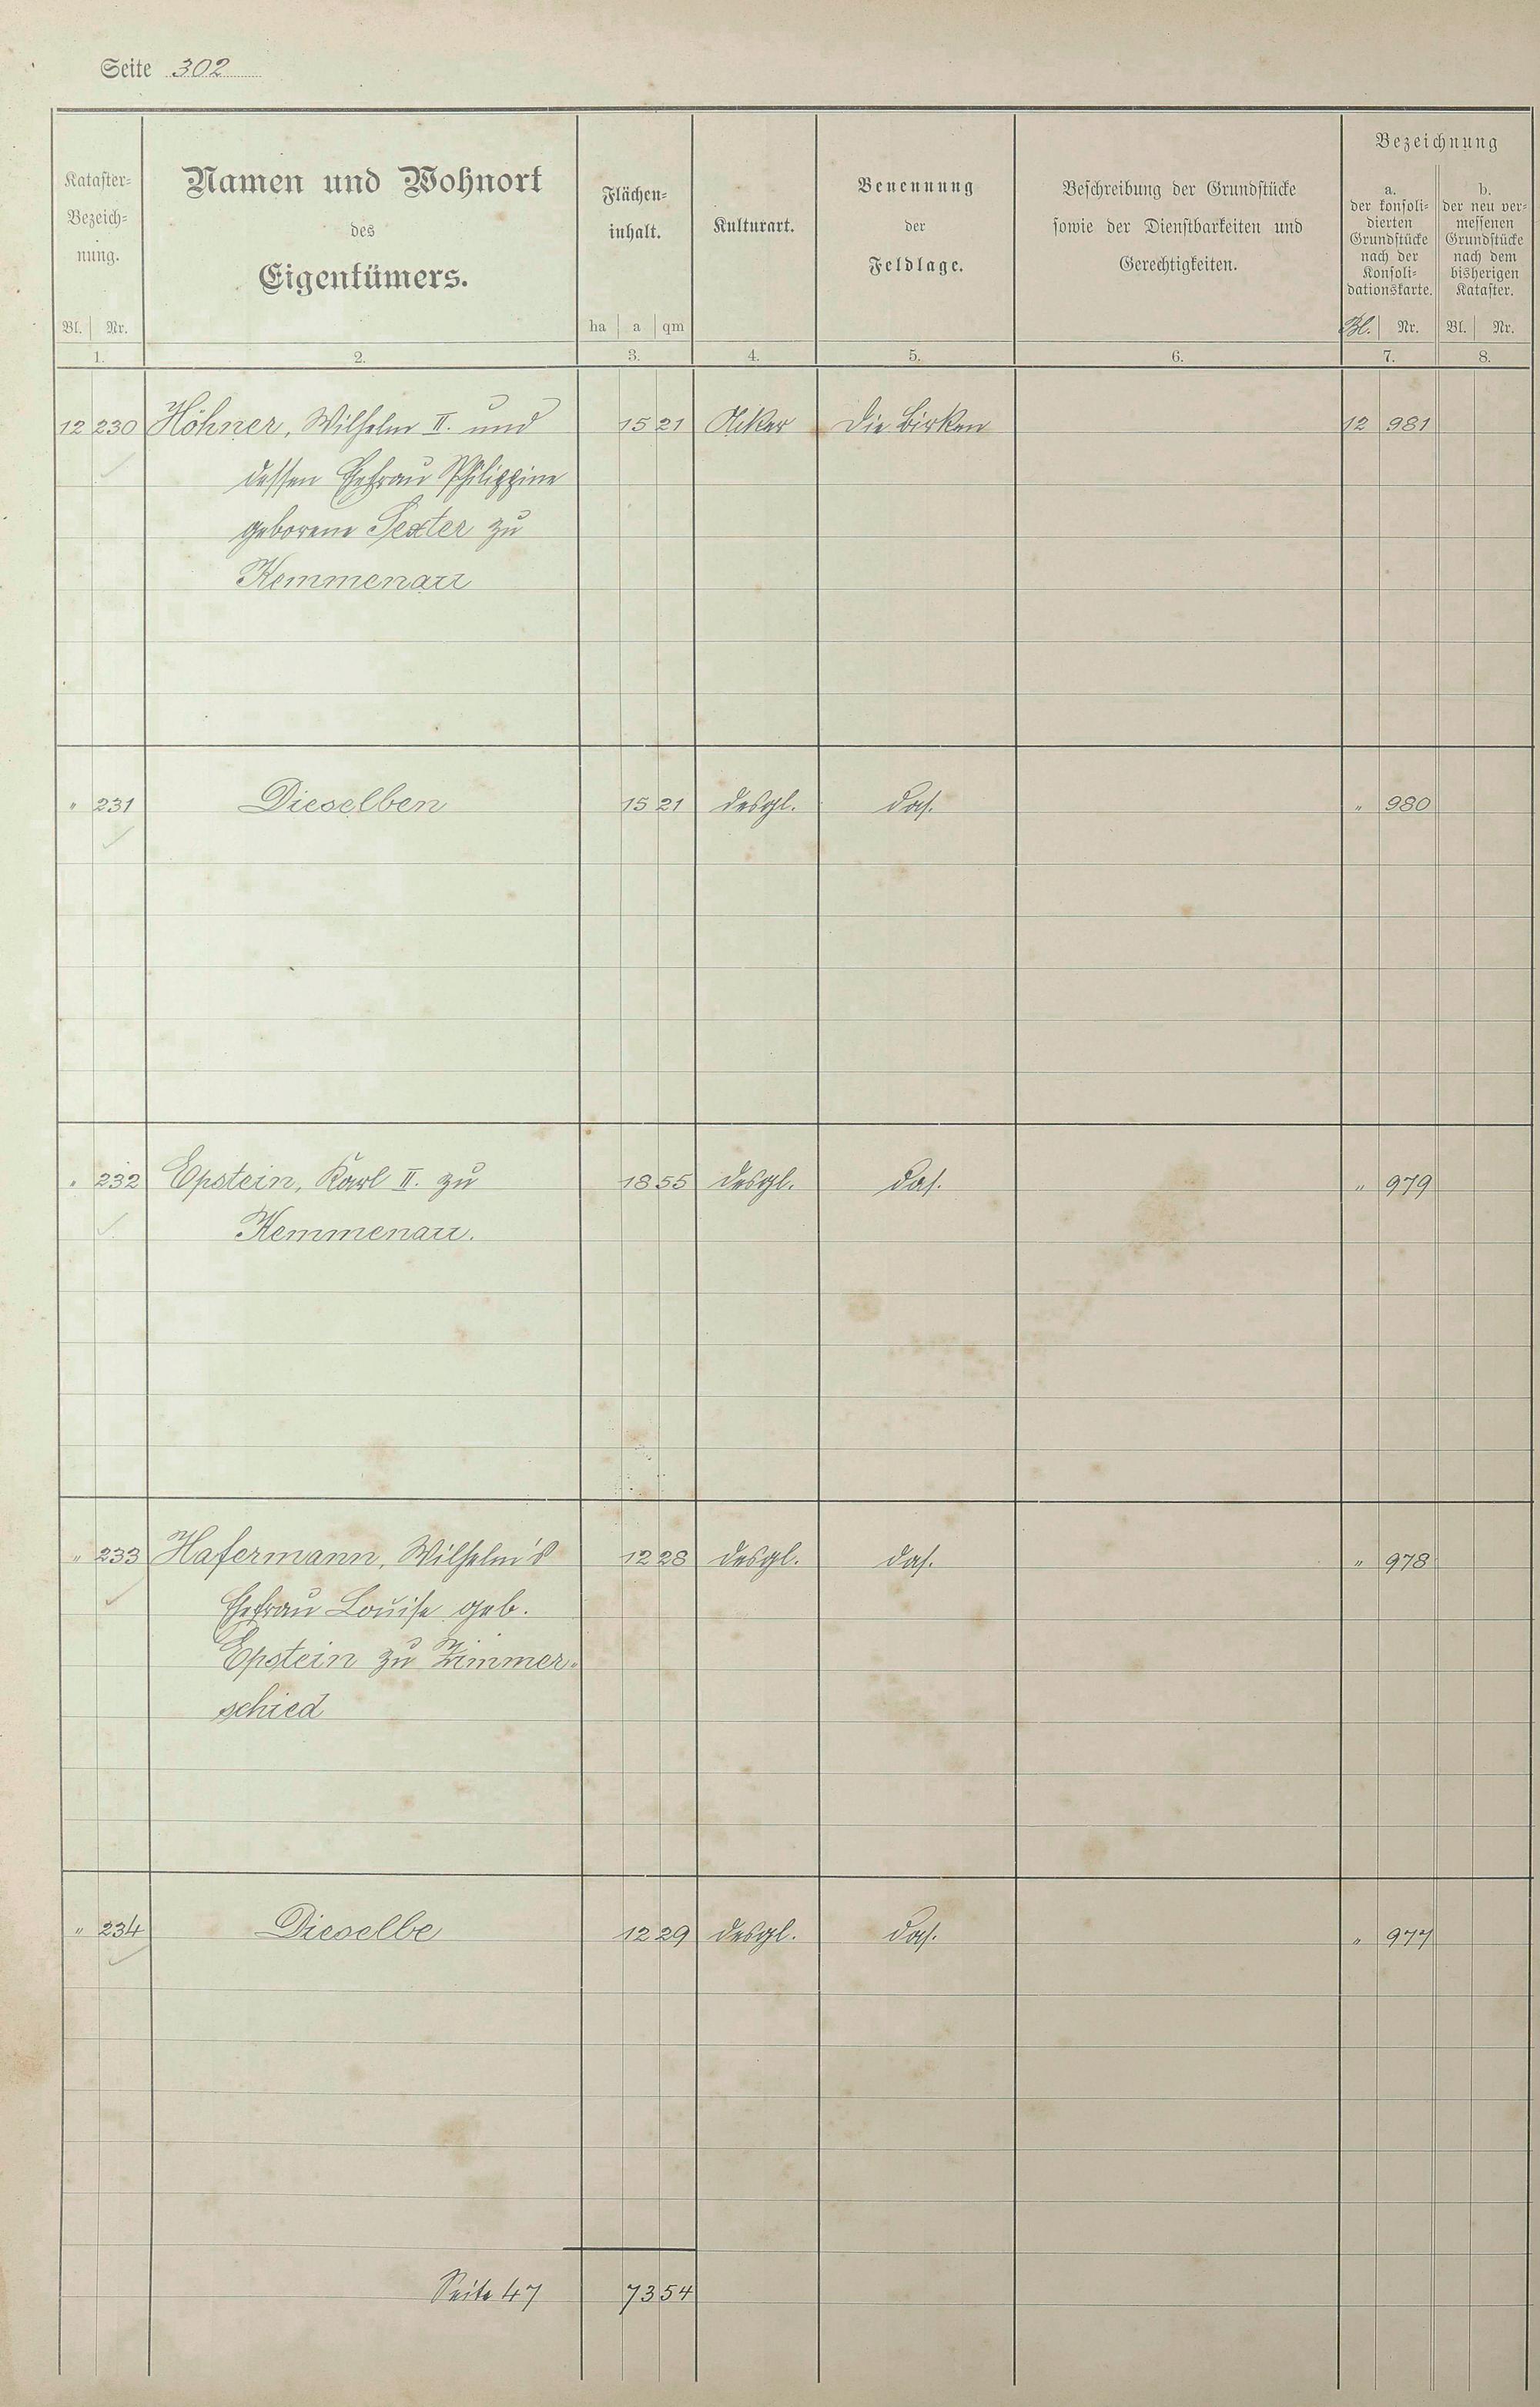 Seite 302
Kataster-
Bezeich-
nung.
Bl. Nr.
1.
Namen und Wohnort
des
Eigentümers.
2.
Flächen-
inhalt.
ha a qm
3.
Kulturart.
4.
Benennung
der
Feldlage.
5.
Beschreibung der Grundstücke
sowie der Dienstbarkeiten und
Gerechtigkeiten.
6.
Bezeichnung
a.
der konsoli-
dierten
Grundstücke
nach der
Konsoli-
dationskarte.
Bl. Nr.
7.
b.
der neu ver-
messenen
Grundstücke
nach dem
bisherigen
Kataster.
Bl. Nr.
8.
12 230 Höhner, Wilhelm II. und 15 21 Acker Die Birken 12 981
dessen Ehefrau Philippine
geborene Sexter zu
Kemmenau
" 231 Dieselben 15 21 desgl. das. " 980
" 232 Epstein, Karl II. zu 18 55 desgl. das. " 979
Kemmenau.
" 233 Hafermann, Wilhelm's 12 28 desgl. das. " 978
Ehefrau Louise geb.
Epstein zu Zimmer-
schied
" 234 Dieselbe 12 29 desgl. das. " 977
Seite 47 73 54